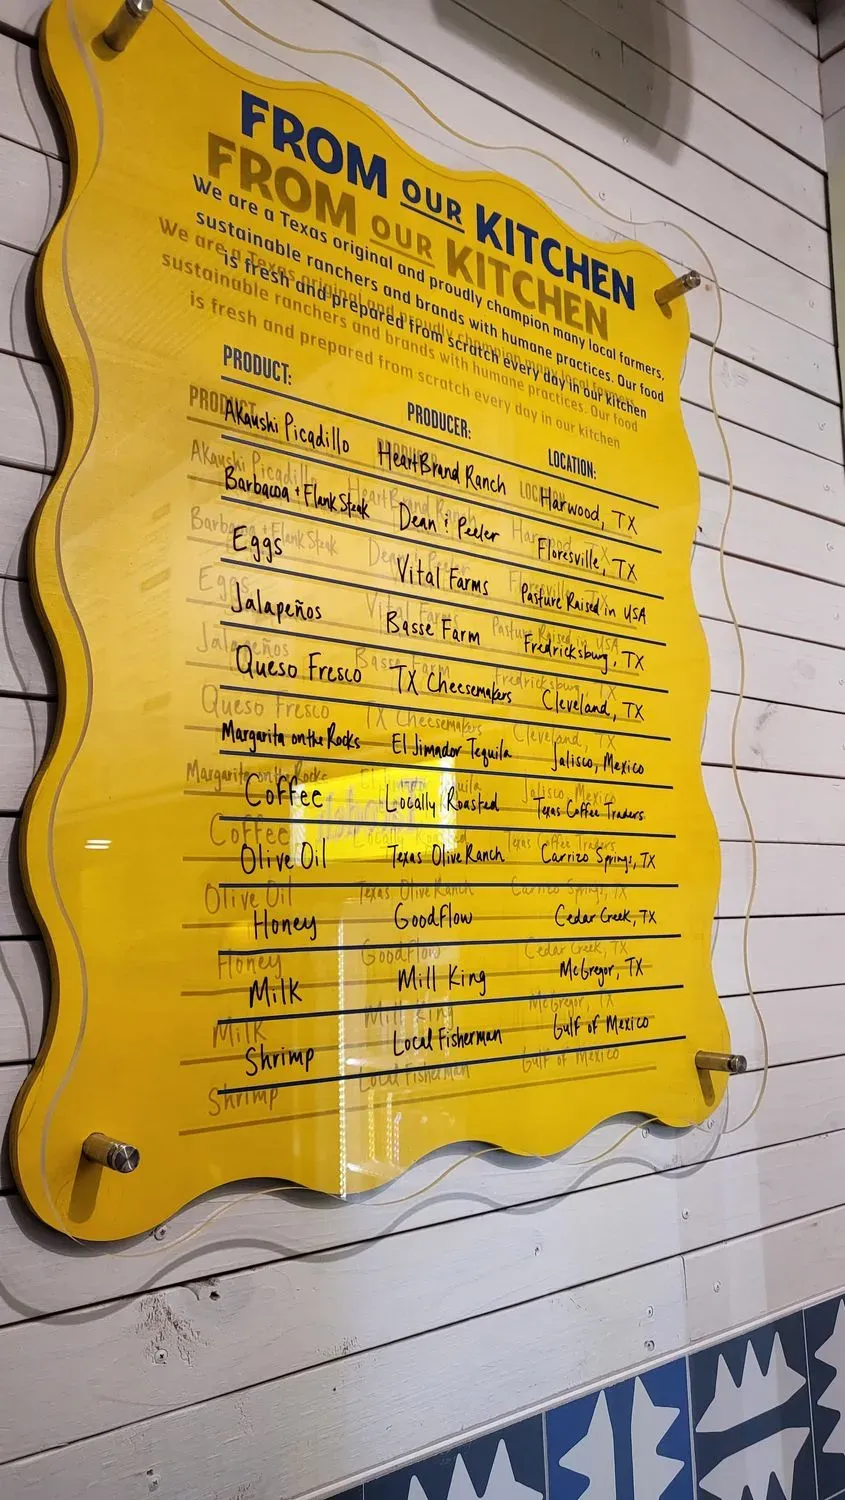 FROM OUR KITCHEN
We are a Texas original and proudly champion many local farmers,
sustainable ranchers and brands with humane practices. Our food
is fresh and prepared from scratch every day in our kitchen
PRODUCT: PRODUCER: LOCATION:
Akaushi Picadillo HeartBrand Ranch Harwood, TX
Barbacoa + Flank Steak Dean & Peeler Floresville, TX
Eggs Vital Farms Pasture Raised in USA
Jalapeños Basse Farm Fredricksburg, TX
Queso Fresco TX Cheesemakers Cleveland, TX
Margarita on the Rocks El Jimador Tequila Jalisco, Mexico
Coffee Locally Roasted Texas Coffee Traders
Olive Oil Texas Olive Ranch Carrizo Springs, TX
Honey GoodFlow Cedar Creek, TX
Milk Mill King McGregor, TX
Shrimp Local Fisherman Gulf of Mexico